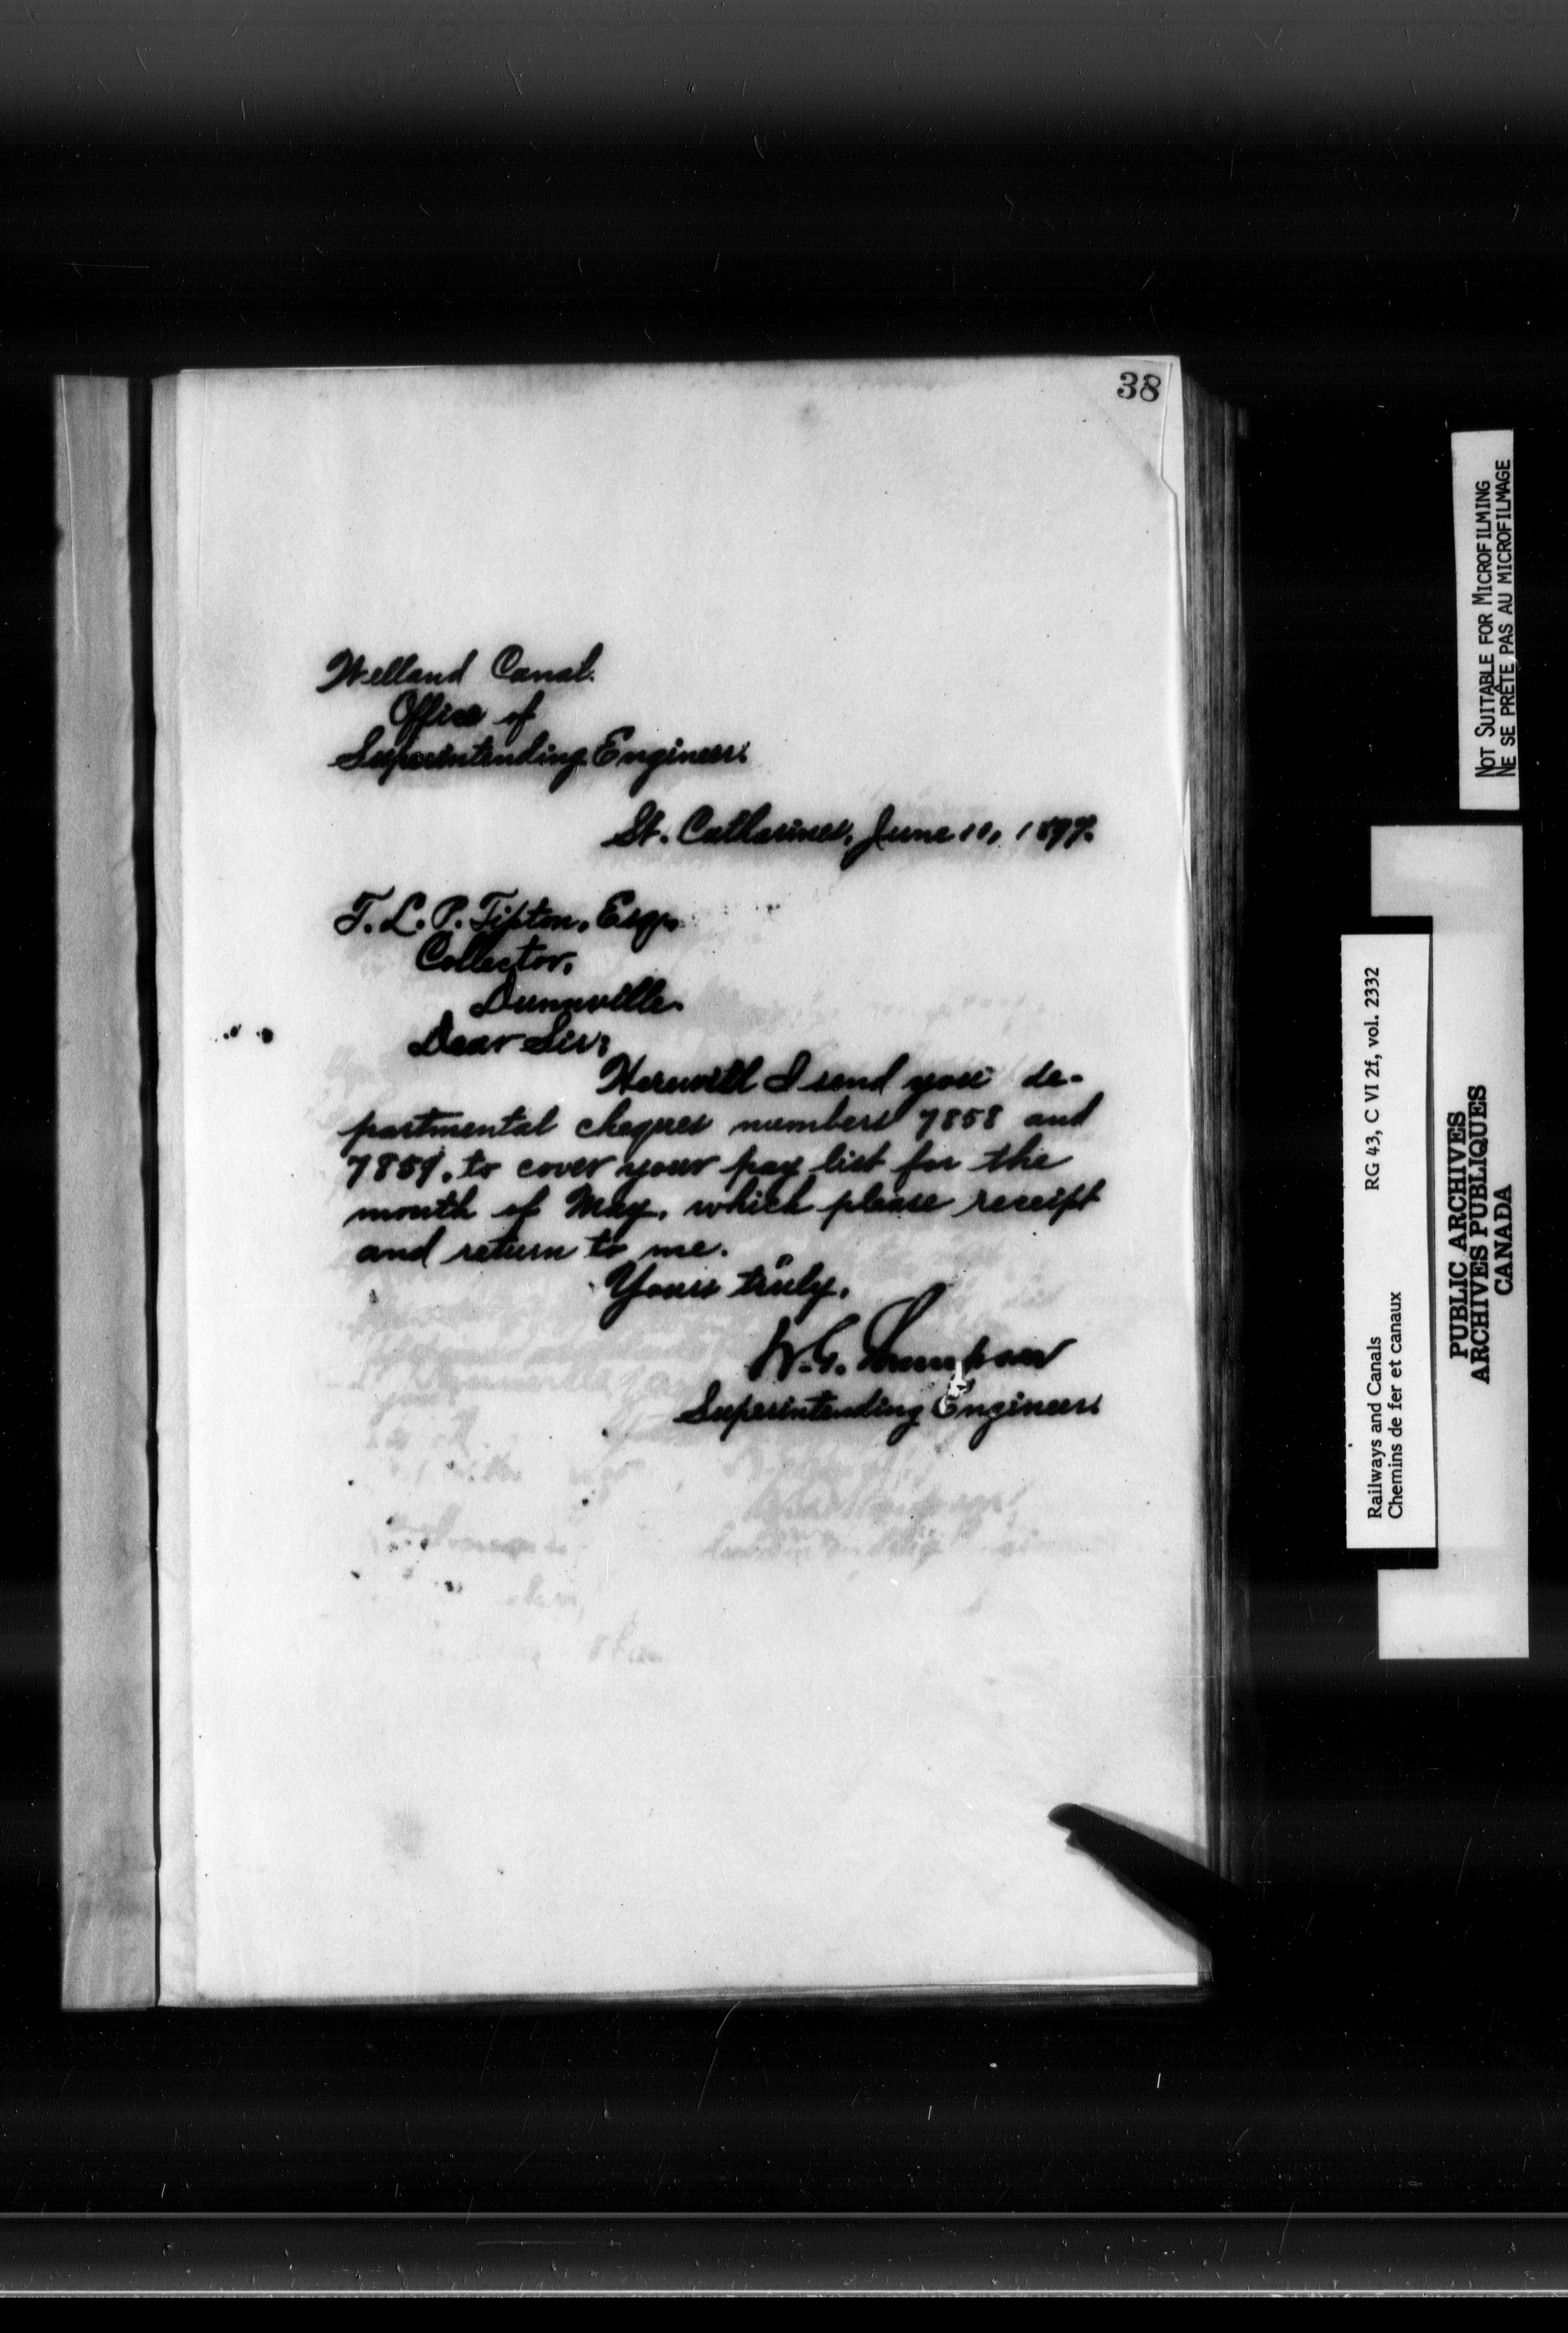 38
Welland Canal.
Office of
Superintending Engineer.
St. Catharines, June 10, 1897.
T. L. P. Tipton, Esq.
Collector,
Dunnville.
Dear Sir:
Herewith I send you de-
partmental cheques numbers 7858 and
7859, to cover your pay list for the
month of May, which please receipt
and return to me.
Yours truly,
W. G. Thompson
Superintending Engineer.
NOT SUITABLE FOR MICROFILMING
NE SE PRÊTE PAS AU MICROFILMAGE
Railways and Canals RG 43, C VI 2f, vol. 2332
Chemins de fer et canaux
PUBLIC ARCHIVES
ARCHIVES PUBLIQUES
CANADA